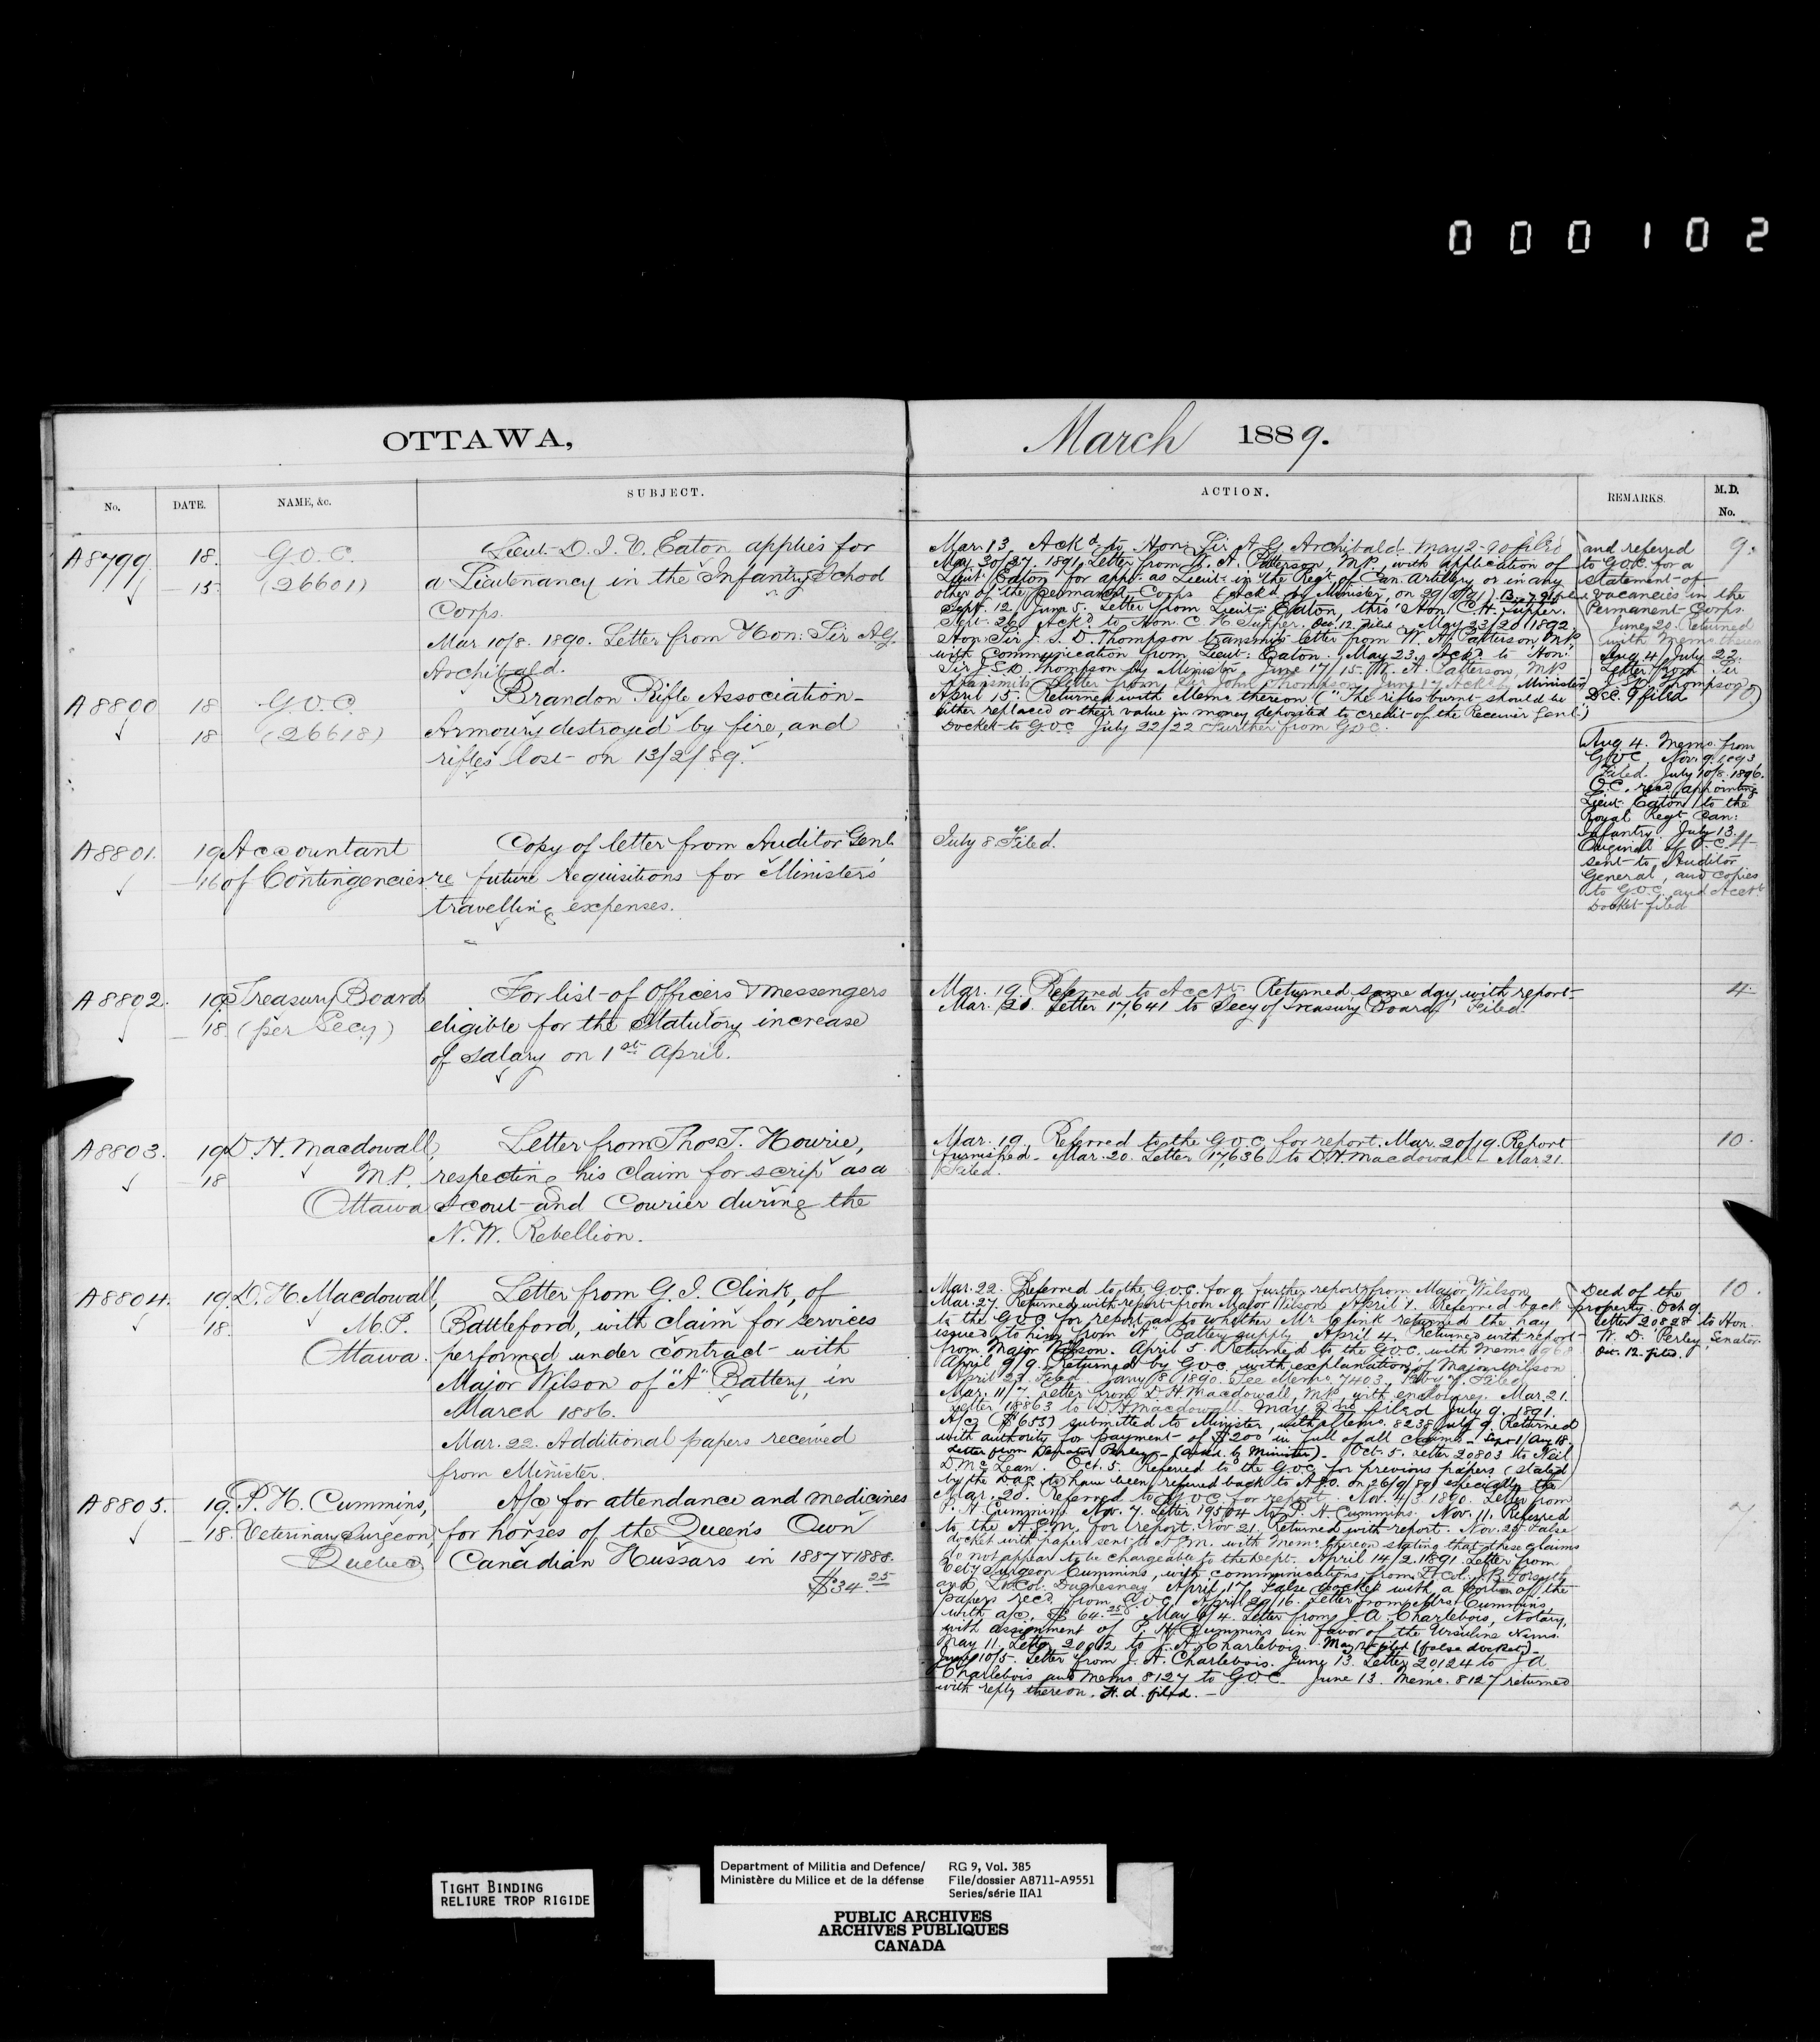 000102
OTTAWA,
March 1889.
No.
DATE.
NAME, &c.
SUBJECT.
ACTION.
REMARKS.
M.D.
No.
A8799 18. G.O.C. Lieut. D. I. V. Eaton applies for
15. (26601) a Lieutenancy in the Infantry School
Corps.
Mar 10/8. 1890. Letter from Hon: Sir A.G.
Archibald.
Mar. 13. Ackd to Hon: Sir A. G. Archibald. May 2-90 filed
May 30/27. 1891. Letter from W. A. Patterson, M.P., with application of
Lieut: Eaton for appt. as Lieut. in the Regt. of Can. Artillery or in any
other of the Permanent Corps (Ackd by Minister, on
Sept. 12. June 5. Letter from Lieut: Eaton, thro' Hon C. H. Tupper.
Sept. 26. Ackd to Hon. C. H. Tupper. Oct. 12. Filed. May 23/20 1892.
Hon: Sir J. S. D. Thompson transmits letter from W. A. Patterson M.P.
with communication from Lieut: Eaton. May 23. Ackd to Hon:
Sir J. S. D. Thompson by Minister. June 17/15. W. A. Patterson, M.P.
transmits letter from Sir John Thompson. June 17 Ackd by Minister
and referred
to G.O.C. for a
statement of
vacancies in the
Permanent Corps.
June 20. Returned
with Memo thereon
Aug 4/July 22.
Letter from Sir
J. S. D. Thompson
Dec. 9 filed
9.
A8800 18 G.O.C. Brandon Rifle Association_
18 (26618) Armoury destroyed by fire, and
rifles lost on 13/2/89.
April 15. Returned with Memo thereon. ("The rifles burnt should be
either replaced or their value in money deposited to credit of the Receiver Genl.")
Docket to G.O.C. July 22/22 Further from G.O.C.
10
Aug 4. Memo. from
G.O.C. Nov. 9. 1893
Filed. July 10/8. 1896.
O.C. recd appointing
Lieut. Eaton to the
Royal Regt Can:
Infantry. July 13.
Original of O.C.
sent to Auditor
General, and copies
to G.O.C. and Acct.
Docket filed
A8801. 19 Accountant Copy of letter from Auditor Genl.
16 of Contingencies re future requisitions for Ministers'
travelling expenses.
July 8. Filed.
4
A8802. 19 Treasury Board For list of Officers & messengers
18. (per Secy) eligible for the Statutory increase
of salary on 1st April.
Mar. 19. Referred to Acct. Returned same day, with report.
Mar. 20. Letter 17641 to Secy of Treasury Board. Filed.
4.
A8803. 19 D. H. Macdowall, Letter from Thos. J. Hourie,
18 M.P. respecting his claim for scrip as a
Ottawa Scout and Courier during the
N. W. Rebellion.
Mar. 19. Referred to the G.O.C. for report. Mar. 20/19. Report
furnished. Mar. 20. Letter 17,636 to D. H. Macdowall. Mar. 21.
Filed.
10.
A8804. 19. D. H. Macdowall, Letter from G. I. Clink, of
18. M.P. Battleford, with claim for services
Ottawa. performed under contract with
Major Wilson of "A" Battery, in
March 1886.
Mar. 22. Additional papers received
from Minister.
Mar. 22. Referred to the G.O.C. for a further report from Major Wilson
Mar. 27. Returned with report from Major Wilson. April 1. Referred back
to the G.O.C. for report as to whether Mr. Clink returned the hay
issued to him from "A" Battery supply. April 4. Returned with report
from Major Wilson. April 5. Returned to the G.O.C. with Memo
April 9/9. Returned by G.O.C. with explanation of Major Wilson
April 23. Filed. Jany 8 1890. See Memo. 7403. Filed
Mar. 11/7. Letter from D. H. Macdowall, M.P., with enclosures. Mar. 21.
Letter 18863 to D. H. Macdowall. May 2nd filed July 9. 1891.
A/c ($653) submitted to Minister, with Memo. 8238. July 9. Returned
with authority for payment of $200 in full of all claims. Sept 1/Aug 18.
Letter from Senator Perley (Ackd. by Minister). Oct. 5. Letter 20803 to Neil
D. McLean. Oct. 5. Referred to the G.O.C. for previous papers (stated
by the DAG to have been referred back to A.G.O. on 26/9/89) especially the
Deed of the
property. Oct 9.
Letter 20828 to Hon.
W. D. Perley, Senator.
Oct. 12. filed.
10.
A8805. 19. P. H. Cummins, A/c for attendance and medicines
18. Veterinary Surgeon, for horses of the Queen's Own
Quebec Canadian Hussars in 1887 & 1888.
$34.25
Mar. 20. Referred to G.O.C. for report. Nov. 4/3 1890. Letter from
P. H. Cummins. Nov. 7. Letter 19504 to P. H. Cummins. Nov. 11. Referred
to the A.G.M. for report. Nov. 21. Returned with report. Nov. 29. False
docket with papers sent to with Memo. thereon stating that these claims
do not appear to be chargeable to the Dept. April 14/2. 1891. Letter from
Vety Surgeon Cummins, with communications from Lt. Col. J. B. Forsyth
and Lt. Col. Duchesnay. April 17. False docket with a portion of the
papers recd. from G.O.C. April 20/16. Letter from Mrs. Cummins,
with a/c, $64.25 May 6/4. Letter from J. A. Charlebois, Notary,
with assignment of P. H. Cummins in favor of the Ursuline Nuns.
May 11. Letter 20012 to J. A. Charlebois. filed (false docket)
June 10/5. Letter from J. A. Charlebois. June 13. Letter 20124 to J. A.
Charlebois and Memo. 8127 to G.O.C. June 13. Memo. 8127 returned
with reply thereon. filed. —
7
TIGHT BINDING
RELIURE TROP RIGIDE
Department of Militia and Defence/
Ministère du Milice et de la défense
RG 9, Vol. 385
File/dossier A8711-A9551
Series/série IIA1
PUBLIC ARCHIVES
ARCHIVES PUBLIQUES
CANADA